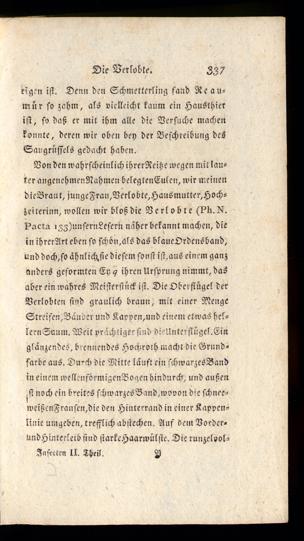 Die Verlobte. 337
rigen ist. Denn den Schmetterling fand Reau-
mür so zahm, als vielleicht kaum ein Hausthier
ist, so daß er mit ihm alle die Versuche machen
konnte, deren wir oben bey der Beschreibung des
Saugrüssels gedacht haben.
Von den wahrscheinlich ihrer Reitze wegen mit lau-
ter angenehmen Nahmen belegten Eulen, wir meinen
die Braut, junge Frau, Verlobte, Hausmutter, Hoch-
zeiterinn, wollen wir bloß die Verlobte (Ph. N.
Pacta 133) unsern Lesern näher bekannt machen, die
in ihrer Art eben so schön, als das blaue Ordensband,
und doch, so ähnlich sie diesem sonst ist, aus einem ganz
anders geformten Ey ihren Ursprung nimmt, das
aber ein wahres Meisterstück ist. Die Oberflügel der
Verlobten sind graulich braun, mit einer Menge
Streifen, Bänder und Kappen, und einem etwas hel-
lern Saum. Weit prächtiger sind die Unterflügel. Ein
glänzendes, brennendes Hochroth macht die Grund-
farbe aus. Durch die Mitte läuft ein schwarzes Band
in einem wellenförmigen Bogen hindurch, und außen
ist noch ein breites schwarzes Band, wovon die schnee-
weißen Fransen, die den Hinterrand in einer Kappen-
linie umgeben, trefflich abstechen. Auf dem Vorder-
und Hinterleib sind starke Haarwülste. Die runzelvol-
Insecten II. Theil. Y